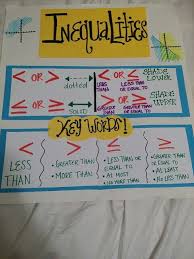 INEQUALITIES
< OR > dotted
< OR ≤ SHADE LOWER
LESS THAN LESS THAN OR EQUAL TO
≤ OR ≥ SOLID
> OR ≥ SHADE UPPER
GREATER THAN GREATER THAN OR EQUAL TO
KEY WORDS!
< > ≤ ≥
LESS THAN
• GREATER THAN
• MORE THAN
• LESS THAN OR EQUAL TO
• AT MOST
• NO MORE THAN
• GREATER THAN OR EQUAL TO
• AT LEAST
• NO LESS THAN